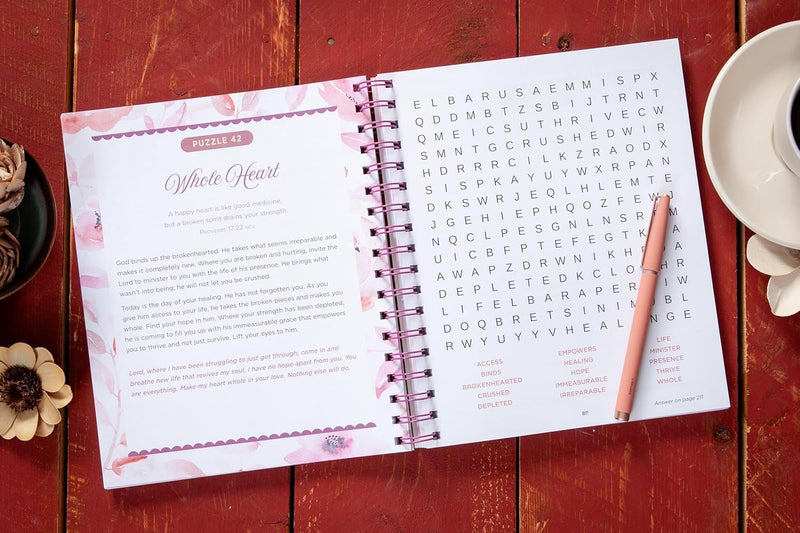 PUZZLE 42
Whole Heart
A happy heart is like good medicine,
but a broken spirit drains your strength.
PROVERBS 17:22 NCV
God binds up the brokenhearted. He takes what seems irreparable and
makes it completely new. Where you are broken and hurting, invite the
Lord to minister to you with the life of his presence. He brings what
wasn't into being; he will not let you be crushed.
Today is the day of your healing. He has not forgotten you. As you
give him access to your life, he takes the broken pieces and makes you
whole. Find your hope in him. Where your strength has been depleted,
he is coming to fill you up with his immeasurable grace that empowers
you to thrive and not just survive. Lift your eyes to him.
Lord, where I have been struggling to just get through, come in and
breathe new life that revives my soul. I have no hope apart from you. You
are everything. Make my heart whole in your love. Nothing else will do.
E L B A R U S A E M M I S P X
Q D D M B T Z S B I J T R N T
Q M E I C S U T H R I V E C W
S M N T G C R U S H E D W I R
H D R R R C I L K Z R A O D X
S I S P K A Y U Y W X R P A N
D K S W R J E Q L H L E M T E
N G E H I E P H Q O Z F E W
N Q C L P E S G N L N S R M
U I C B F P T E F E G T K A
A W A P Z D R W N I K H A
D E P L E T E D K C L O H R
L I F E L B A R A P E R I W
D O Q B R E T S I N I M B L
R W Y U Y Y V H E A L G E
ACCESS
BINDS
BROKENHEARTED
CRUSHED
DEPLETED
EMPOWERS
HEALING
HOPE
IMMEASURABLE
IRREPARABLE
LIFE
MINISTER
PRESENCE
THRIVE
WHOLE
87
Answer on page 211